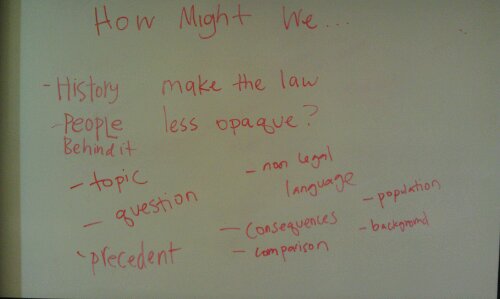 How Might We...
- History make the law
- People less opaque?
Behind it
- topic
- question
- precedent
- non legal
language
- consequences
- comparison
- population
- background